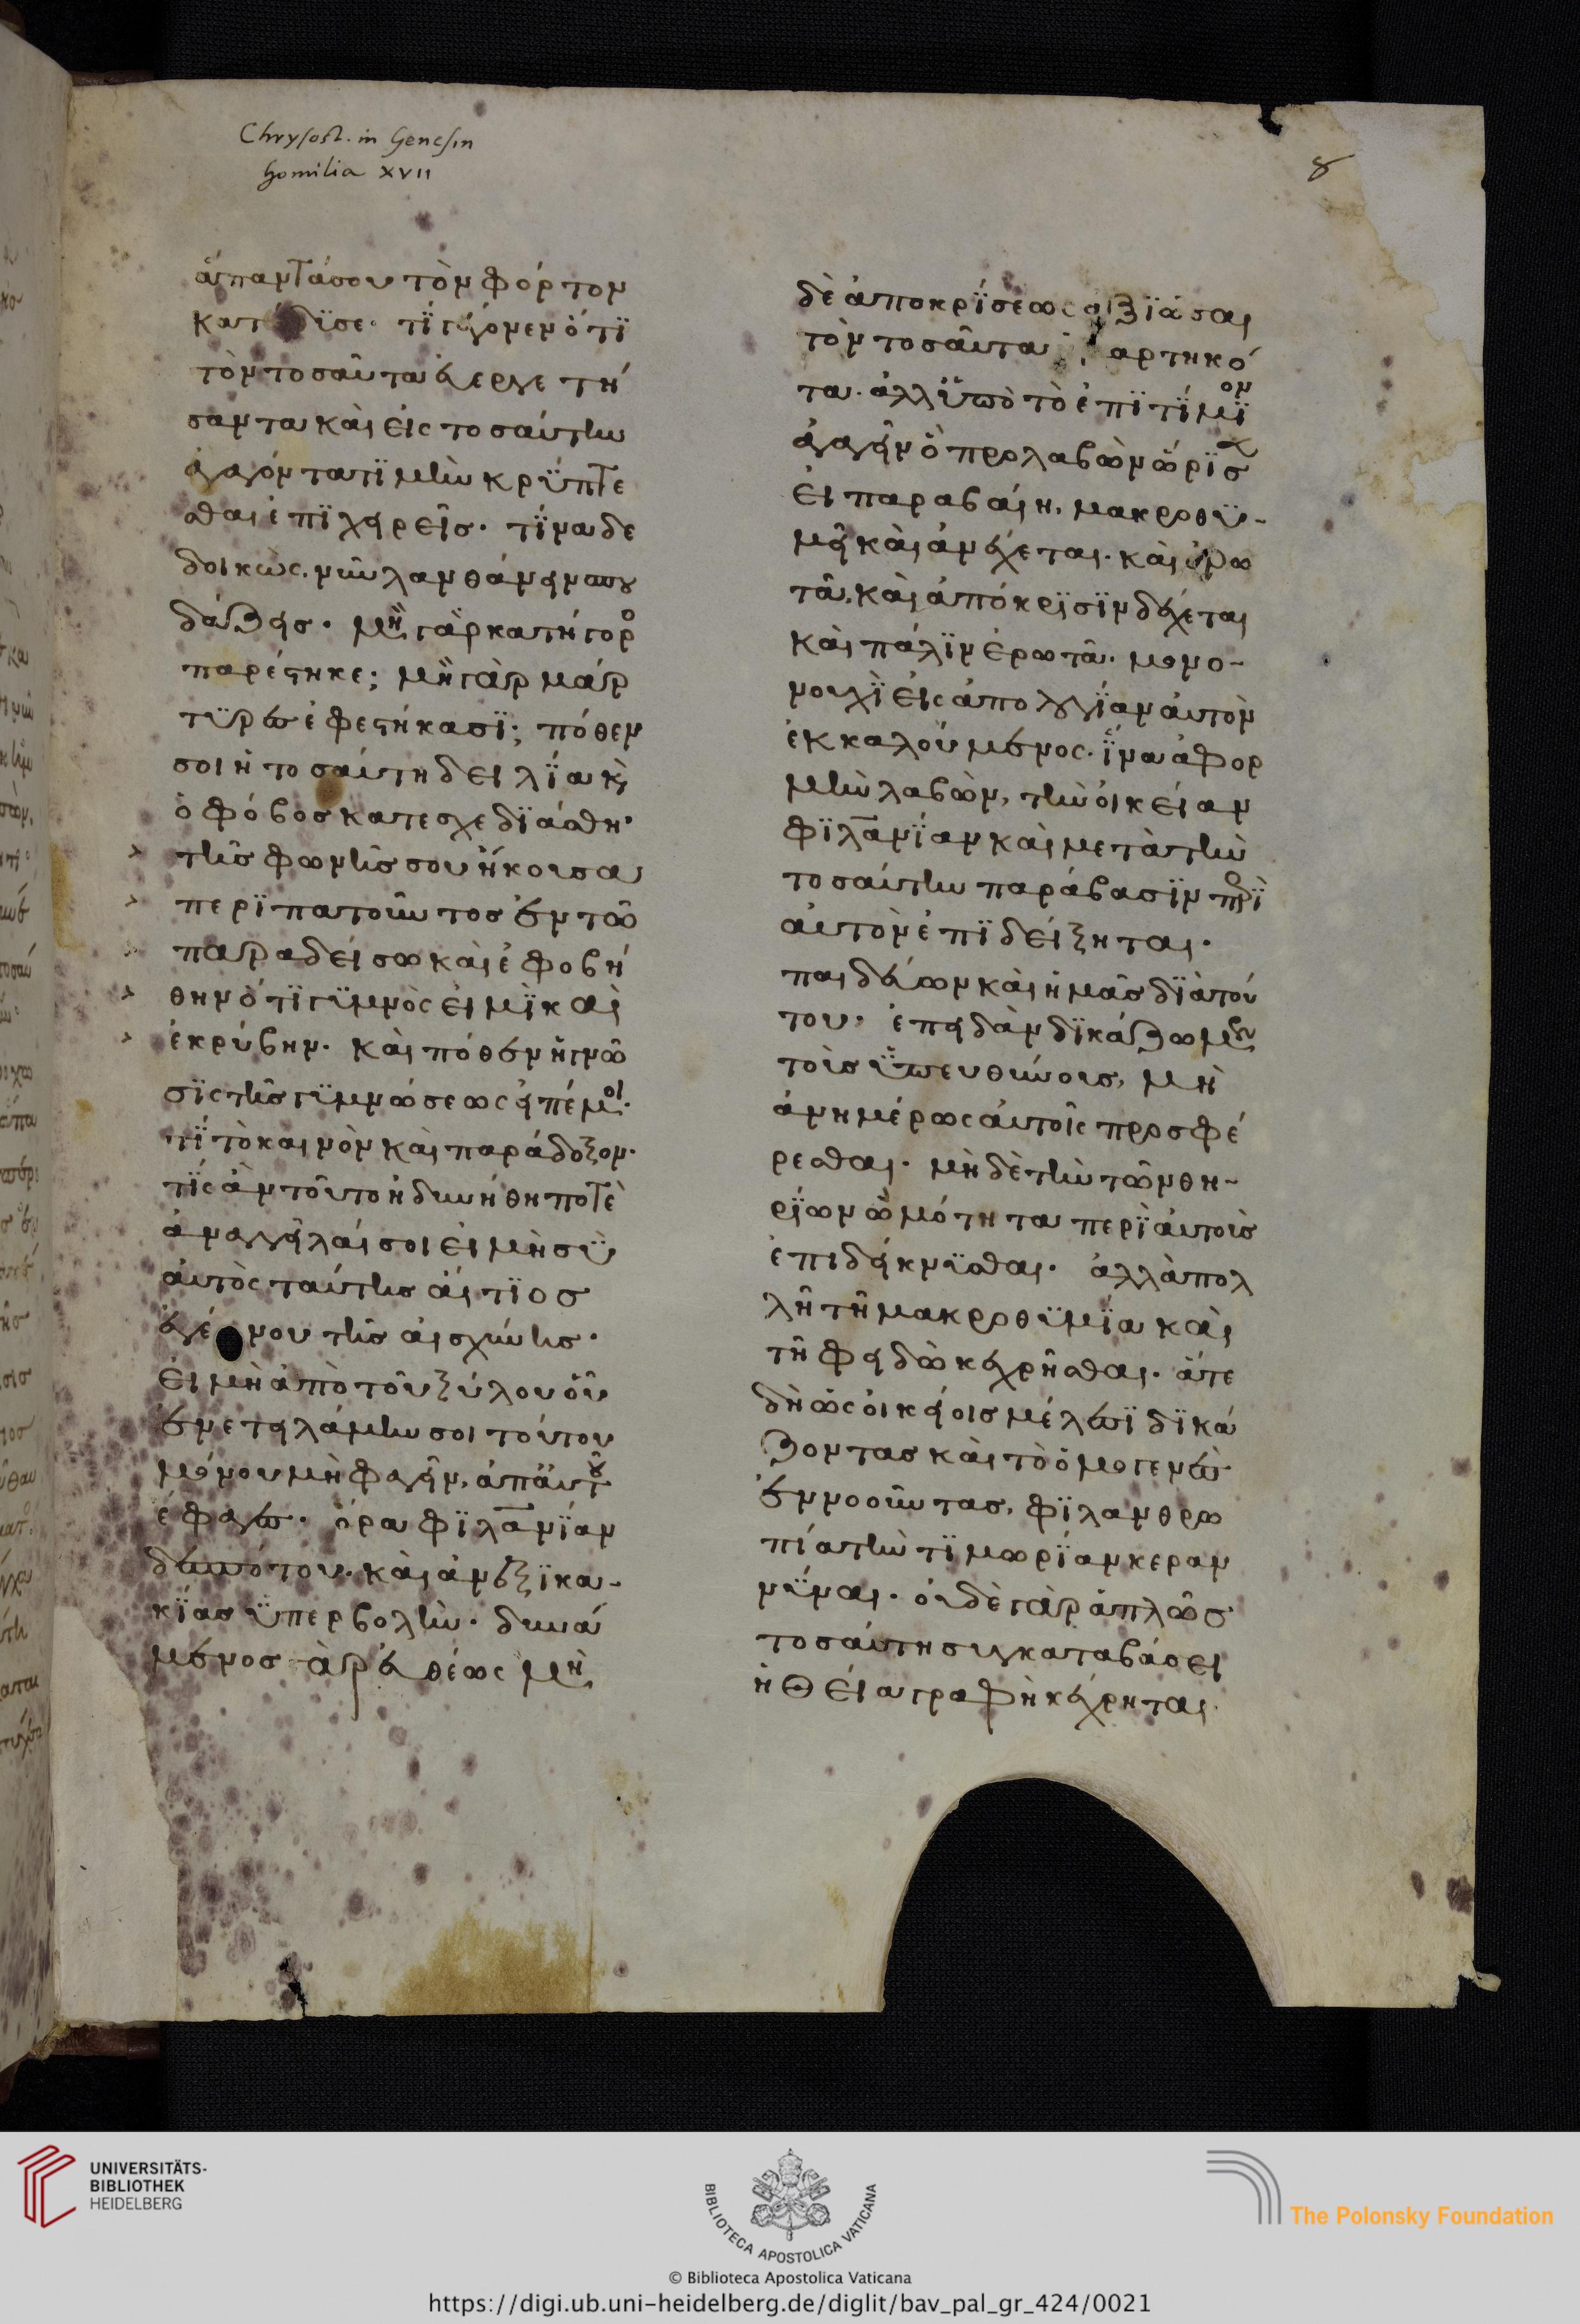 Chrysost. in Genesin
Homilia XVII
8
ἅπαντά σου τὸν φόρτον
κατέδϋσε. τί γέγονεν ὅτϊ
τὸν τοσαῦτα εὐεργετή
σαντα καὶ εἰς τοσαύτην
ἀγαγόντα τϊμὴν κρύπτε
σθαι ἐπϊχειρεῖσ. τίνα δε
δοικὼς νῦν λανθάνειν σπου
δάζεισ. μὴ γὰρ κατήγορο
παρέστηκε; μὴ γὰρ μάρ
τϋρες ἐφεστήκασϊ; πόθεν
σοι ἡ τοσαύτη δειλΐα κὶ
ὁ φόβος κατεσχεδϊάσθη.
τῆς φωνῆς σου ἤκουσα
περϊπατοῦντοσ ἐν τῶ
παραδείσω καὶ ἐφοβή
θην ὅτϊ γϋμνὸς εἰμὶ καὶ
ἐκρύβην. καὶ πόθεν ἡ γνῶ
σϊς τῆς γϋμνώσεως εἰπέ μοι.
τί τὸ καινὸν καὶ παράδοξον.
τίς ἂν τοῦτο ἠδυνήθη ποτὲ
ἀναγγεῖλαί σοι εἰ μὴ σὺ
αὐτὸς ταύτης αἴτϊοσ
ἐγένου τῆς αἰσχύνης.
εἰ μὴ ἀπὸ τοῦ ξύλου οὗ
ἐνετειλάμην σοι τούτου
μόνου μὴ φαγεῖν, ἀπ αὐτοῦ
ἔφαγες. ὅρα φϊλανϊαν
δεσπότου. καὶ ἀνεξϊκα-
κίασ ὑπερβολὴν. δυνά
μενοσ γὰρ εὐθέως μὴ
δὲ ἀποκρΐσεως ἀξϊῶσαι
τὸν τοσαῦτα ἡμαρτηκό
τα. ἀλλ ὑπὸ τὸ ἐπϊτίμϊον
ἀγαγεῖν ὃ προλαβὼν ὥρϊσε
εἰ παραβαίη, μακροθϋ-
μεῖ καὶ ἀνέχεται. καὶ ἐρω
τᾶ, καὶ ἀπόκρϊσϊν δέχεται
καὶ πάλϊν ἐρωτᾶ. μονο-
νουχὶ εἰς ἀπολογΐαν αὐτὸν
ἐκκαλούμενος. ἵνα ἀφορ
μὴν λαβὼν, τὴν οἰκείαν
φϊλανΐαν καὶ μετὰ τὴν
τοσαύτην παράβασϊν περὶ
αὐτὸν ἐπϊδείξηται.
παιδεύων καὶ ἡμᾶσ δϊὰ τού
του. ἐπειδὰν δϊκάζωμεν
τοῖσ ὑπευθύνοισ, μὴ
ἀνημέρως αὐτοῖς προσφέ
ρεσθαι. μὴ δὲ τὴν τῶν θη-
ρΐων ὠμότητα περὶ αὐτοὺσ
ἐπιδείκνϋσθαι. ἀλλὰ πολ
λῆ τῆ μακροθϋμΐα καὶ
τῆ φειδῶ κέχρῆσθαι. ἅτε
δὴ ὡς οἰκείοισ μέλεσϊ δϊκά
ζοντασ καὶ τὸ ὁμογενὲς
ἐννοοῦντασ, φϊλανθρω
πία τὴν τϊμωρΐαν κεραν
νΰναι. οὐδὲ γὰρ ἁπλῶσ
τοσαύτη συγκαταβάσει
ἡ θεία γραφὴ κέχρηται.
UNIVERSITÄTS-
BIBLIOTHEK
HEIDELBERG
BIBLIOTECA APOSTOLICA VATICANA
The Polonsky Foundation
© Biblioteca Apostolica Vaticana
https://digi.ub.uni-heidelberg.de/diglit/bav_pal_gr_424/0021